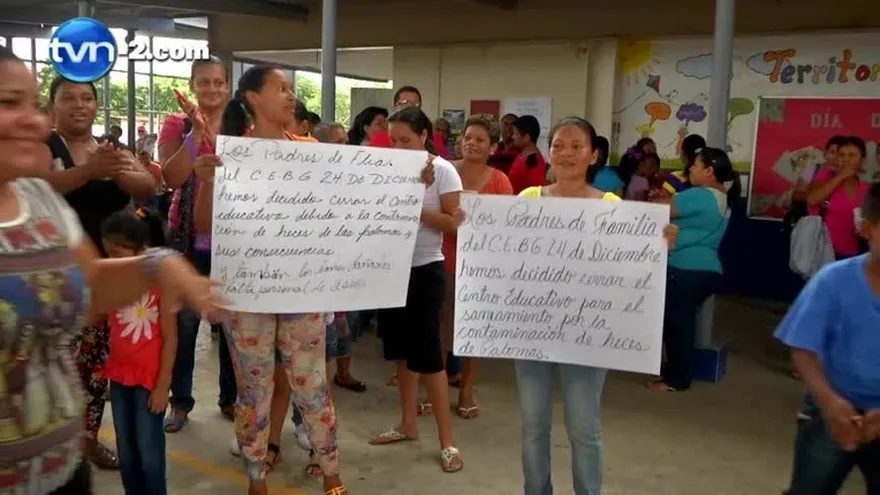 tvn-2.com
Los Padres de Flia.
del C.E.B.G 24 DE DICIEMBRE
hemos decidido cerrar el centro
educativo debido a la contamina
cion de heces de las palomas y
sus consecuencias.
y también los
falta personal de aseo
Los Padres de Familia
del C.E.B.G 24 de Diciembre
hemos decidido cerrar el
Centro Educativo para el
saneamiento por la
contaminación de heces
de Palomas.
Territor
DÍA DE